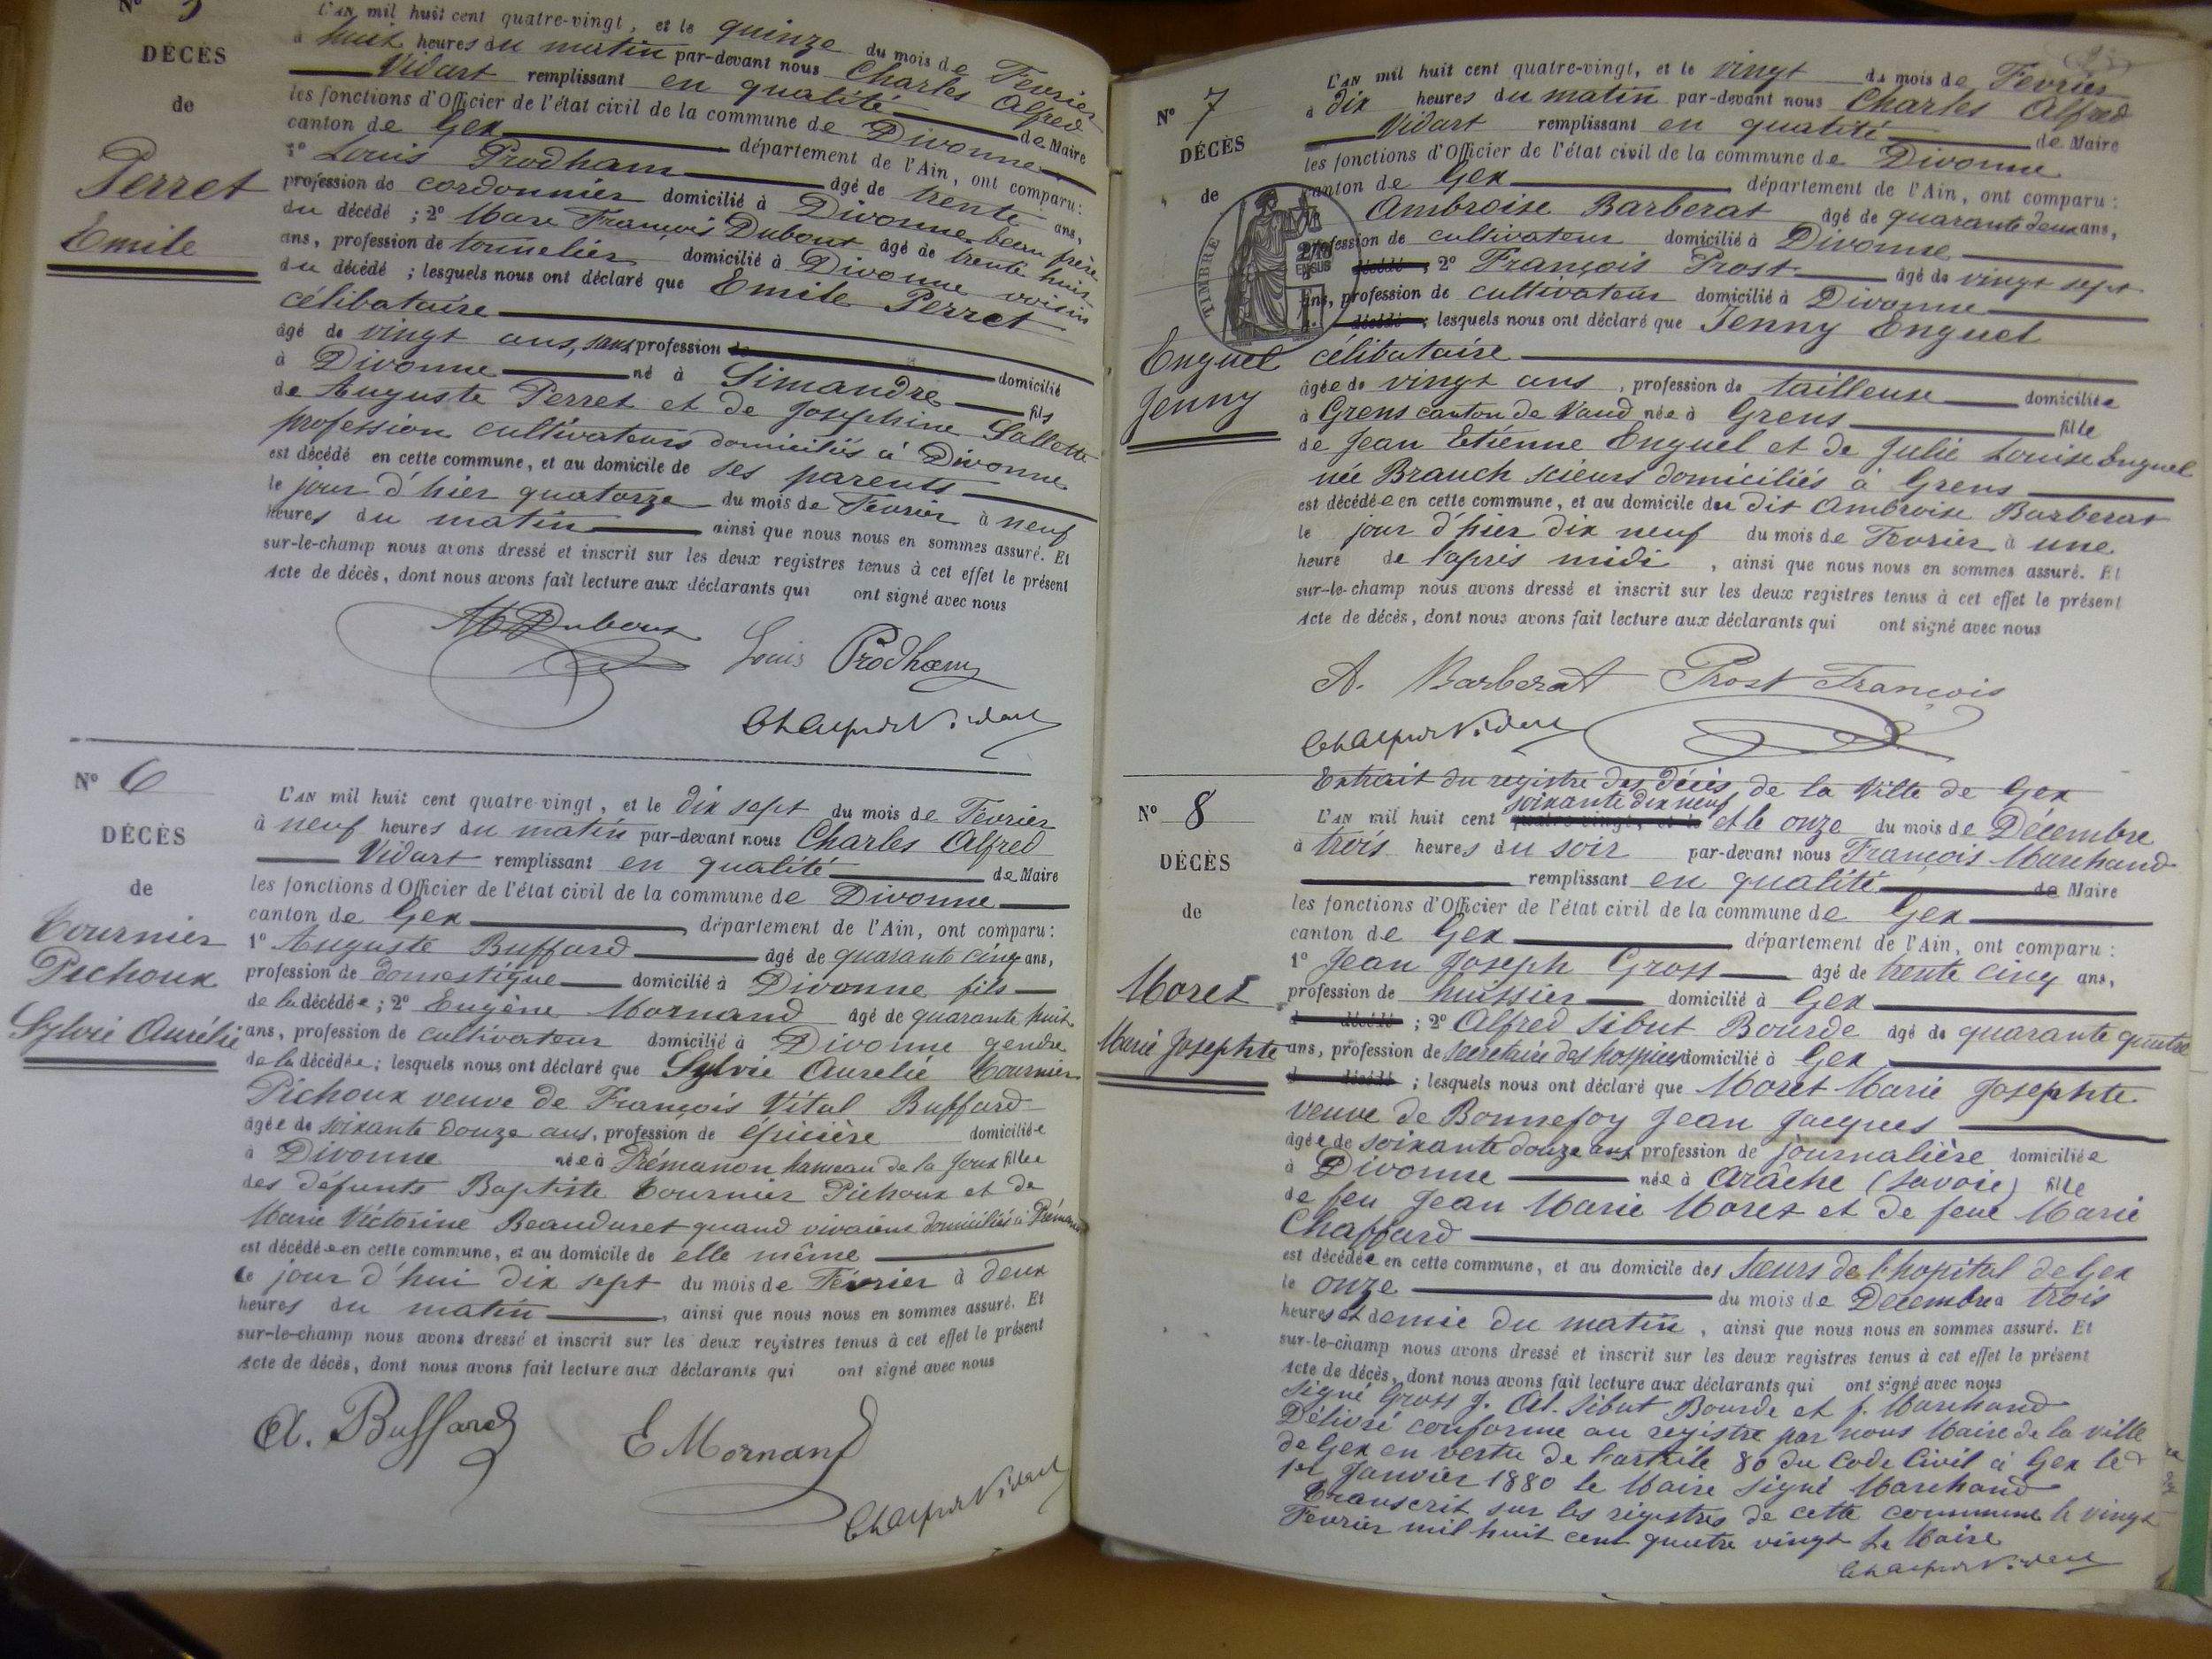 N° 5
DÉCÈS
de
Perret
Emile
L'AN mil huit cent quatre-vingt, et le quinze du mois de Fevrier
à huit heures du matin par-devant nous Charles Alfred
Vidart remplissant en qualité de Maire
les fonctions d'Officier de l'état civil de la commune de Divonne
canton de Gex département de l'Ain, ont comparu:
1° Louis Prodham âgé de trente ans,
profession de cordonnier domicilié à Divonne beau frère
du décédé ; 2° Marc François Dubout âgé de trente huit
ans, profession de tonnelier domicilié à Divonne voisin
du décédé ; lesquels nous ont déclaré que Emile Perret
célibataire
âgé de vingt ans, sans profession domicilié
à Divonne né à Simandre fils
de Auguste Perret et de Josephine Sallette
profession cultivateurs domiciliés à Divonne
est décédé en cette commune, et au domicile de ses parents
le jour d'hier quatorze du mois de Fevrier à neuf
heures du matin ainsi que nous nous en sommes assuré. Et
sur-le-champ nous avons dressé et inscrit sur les deux registres tenus à cet effet le présent
Acte de décès, dont nous avons fait lecture aux déclarants qui ont signé avec nous
Dubout Louis Prodham
Ch Alfred Vidart
N° 6
DÉCÈS
de
Tournier
Pichoux
Sylvie Aurélie
L'AN mil huit cent quatre-vingt, et le dix sept du mois de Fevrier
à neuf heures du matin par-devant nous Charles Alfred
Vidart remplissant en qualité de Maire
les fonctions d'Officier de l'état civil de la commune de Divonne
canton de Gex département de l'Ain, ont comparu:
1° Auguste Buffard âgé de quarante cinq ans,
profession de domestique domicilié à Divonne fils
de la décédée ; 2° Eugène Mornand âgé de quarante huit
ans, profession de cultivateur domicilié à Divonne gendre
de la décédée ; lesquels nous ont déclaré que Sylvie Aurelie Tournier
Pichoux veuve de François Vital Buffard
âgée de soixante douze ans, profession de épicière domiciliée
à Divonne née à Prémanon hameau de la Joux fille
des défunts Baptiste Tournier Pichoux et de
Marie Victorine Beauduret quand vivaient domiciliés à Prémanon
est décédée en cette commune, et au domicile de elle même
le jour d'hui dix sept du mois de Fevrier à deux
heures du matin , ainsi que nous nous en sommes assuré. Et
sur-le-champ nous avons dressé et inscrit sur les deux registres tenus à cet effet le présent
Acte de décès, dont nous avons fait lecture aux déclarants qui ont signé avec nous
A. Buffard E Mornand
Ch Alfred Vidart
N° 7
DÉCÈS
de
TIMBRE
Enguel
Jenny
L'AN mil huit cent quatre-vingt, et le vingt du mois de Fevrier
à dix heures du matin par-devant nous Charles Alfred
Vidart remplissant en qualité de Maire
les fonctions d'Officier de l'état civil de la commune de Divonne
canton de Gex département de l'Ain, ont comparu :
Ambroise Barberat âgé de quarante deux ans,
profession de cultivateur domicilié à Divonne
décédé ; 2° François Prost âgé de vingt sept
ans, profession de cultivateur domicilié à Divonne
décédé ; lesquels nous ont déclaré que Jenny Enguel
célibataire
âgée de vingt ans , profession de tailleuse domiciliée
à Grens canton de Vaud née à Grens fille
de Jean Etienne Enguel et de Julie Louise Enguel
née Brauch scieurs domiciliés à Grens
est décédée en cette commune, et au domicile du dit Ambroise Barberat
le jour d'hier dix neuf du mois de Fevrier à une
heure de l'après midi , ainsi que nous nous en sommes assuré. Et
sur-le-champ nous avons dressé et inscrit sur les deux registres tenus à cet effet le présent
Acte de décès, dont nous avons fait lecture aux déclarants qui ont signé avec nous
A. Barberat Prost François
Ch Alfred Vidart
N° 8
DÉCÈS
de
Moret
Marie Josephte
Extrait du registre des décès de la Ville de Gex
soixante dix neuf
L'AN mil huit cent quatre-vingt, et le et le onze du mois de Décembre
à trois heures du soir par-devant nous François Marchand
remplissant en qualité de Maire
les fonctions d'Officier de l'état civil de la commune de Gex
canton de Gex département de l'Ain, ont comparu :
1° Jean Joseph Gross âgé de trente cinq ans,
profession de huissier domicilié à Gex
décédé ; 2° Alfred Sibut Bourde âgé de quarante quatre
ans, profession de secretaire des hospices domicilié à Gex
décédé ; lesquels nous ont déclaré que Moret Marie Josephte
veuve de Bonnefoy Jean Jacques
âgée de soixante douze ans profession de journalière domiciliée
à Divonne née à Arâche (Savoie) fille
de feu Jean Marie Moret et de feue Marie
Chaffard
est décédée en cette commune, et au domicile des Sœurs de l'hopital de Gex
le onze du mois de Decembre à trois
heures et demie du matin , ainsi que nous nous en sommes assuré. Et
sur-le-champ nous avons dressé et inscrit sur les deux registres tenus à cet effet le présent
Acte de décès, dont nous avons fait lecture aux déclarants qui ont signé avec nous
Signé Gross J. Al. Sibut Bourde et f. Marchand
Délivré conforme au registre par nous Maire de la ville
de Gex en vertu de l'article 80 du Code Civil à Gex le
1er Janvier 1880 le Maire signé Marchand
Transcrit sur les registres de cette commune le vingt
Fevrier mil huit cent quatre vingt Le Maire
Ch Alfred Vidart